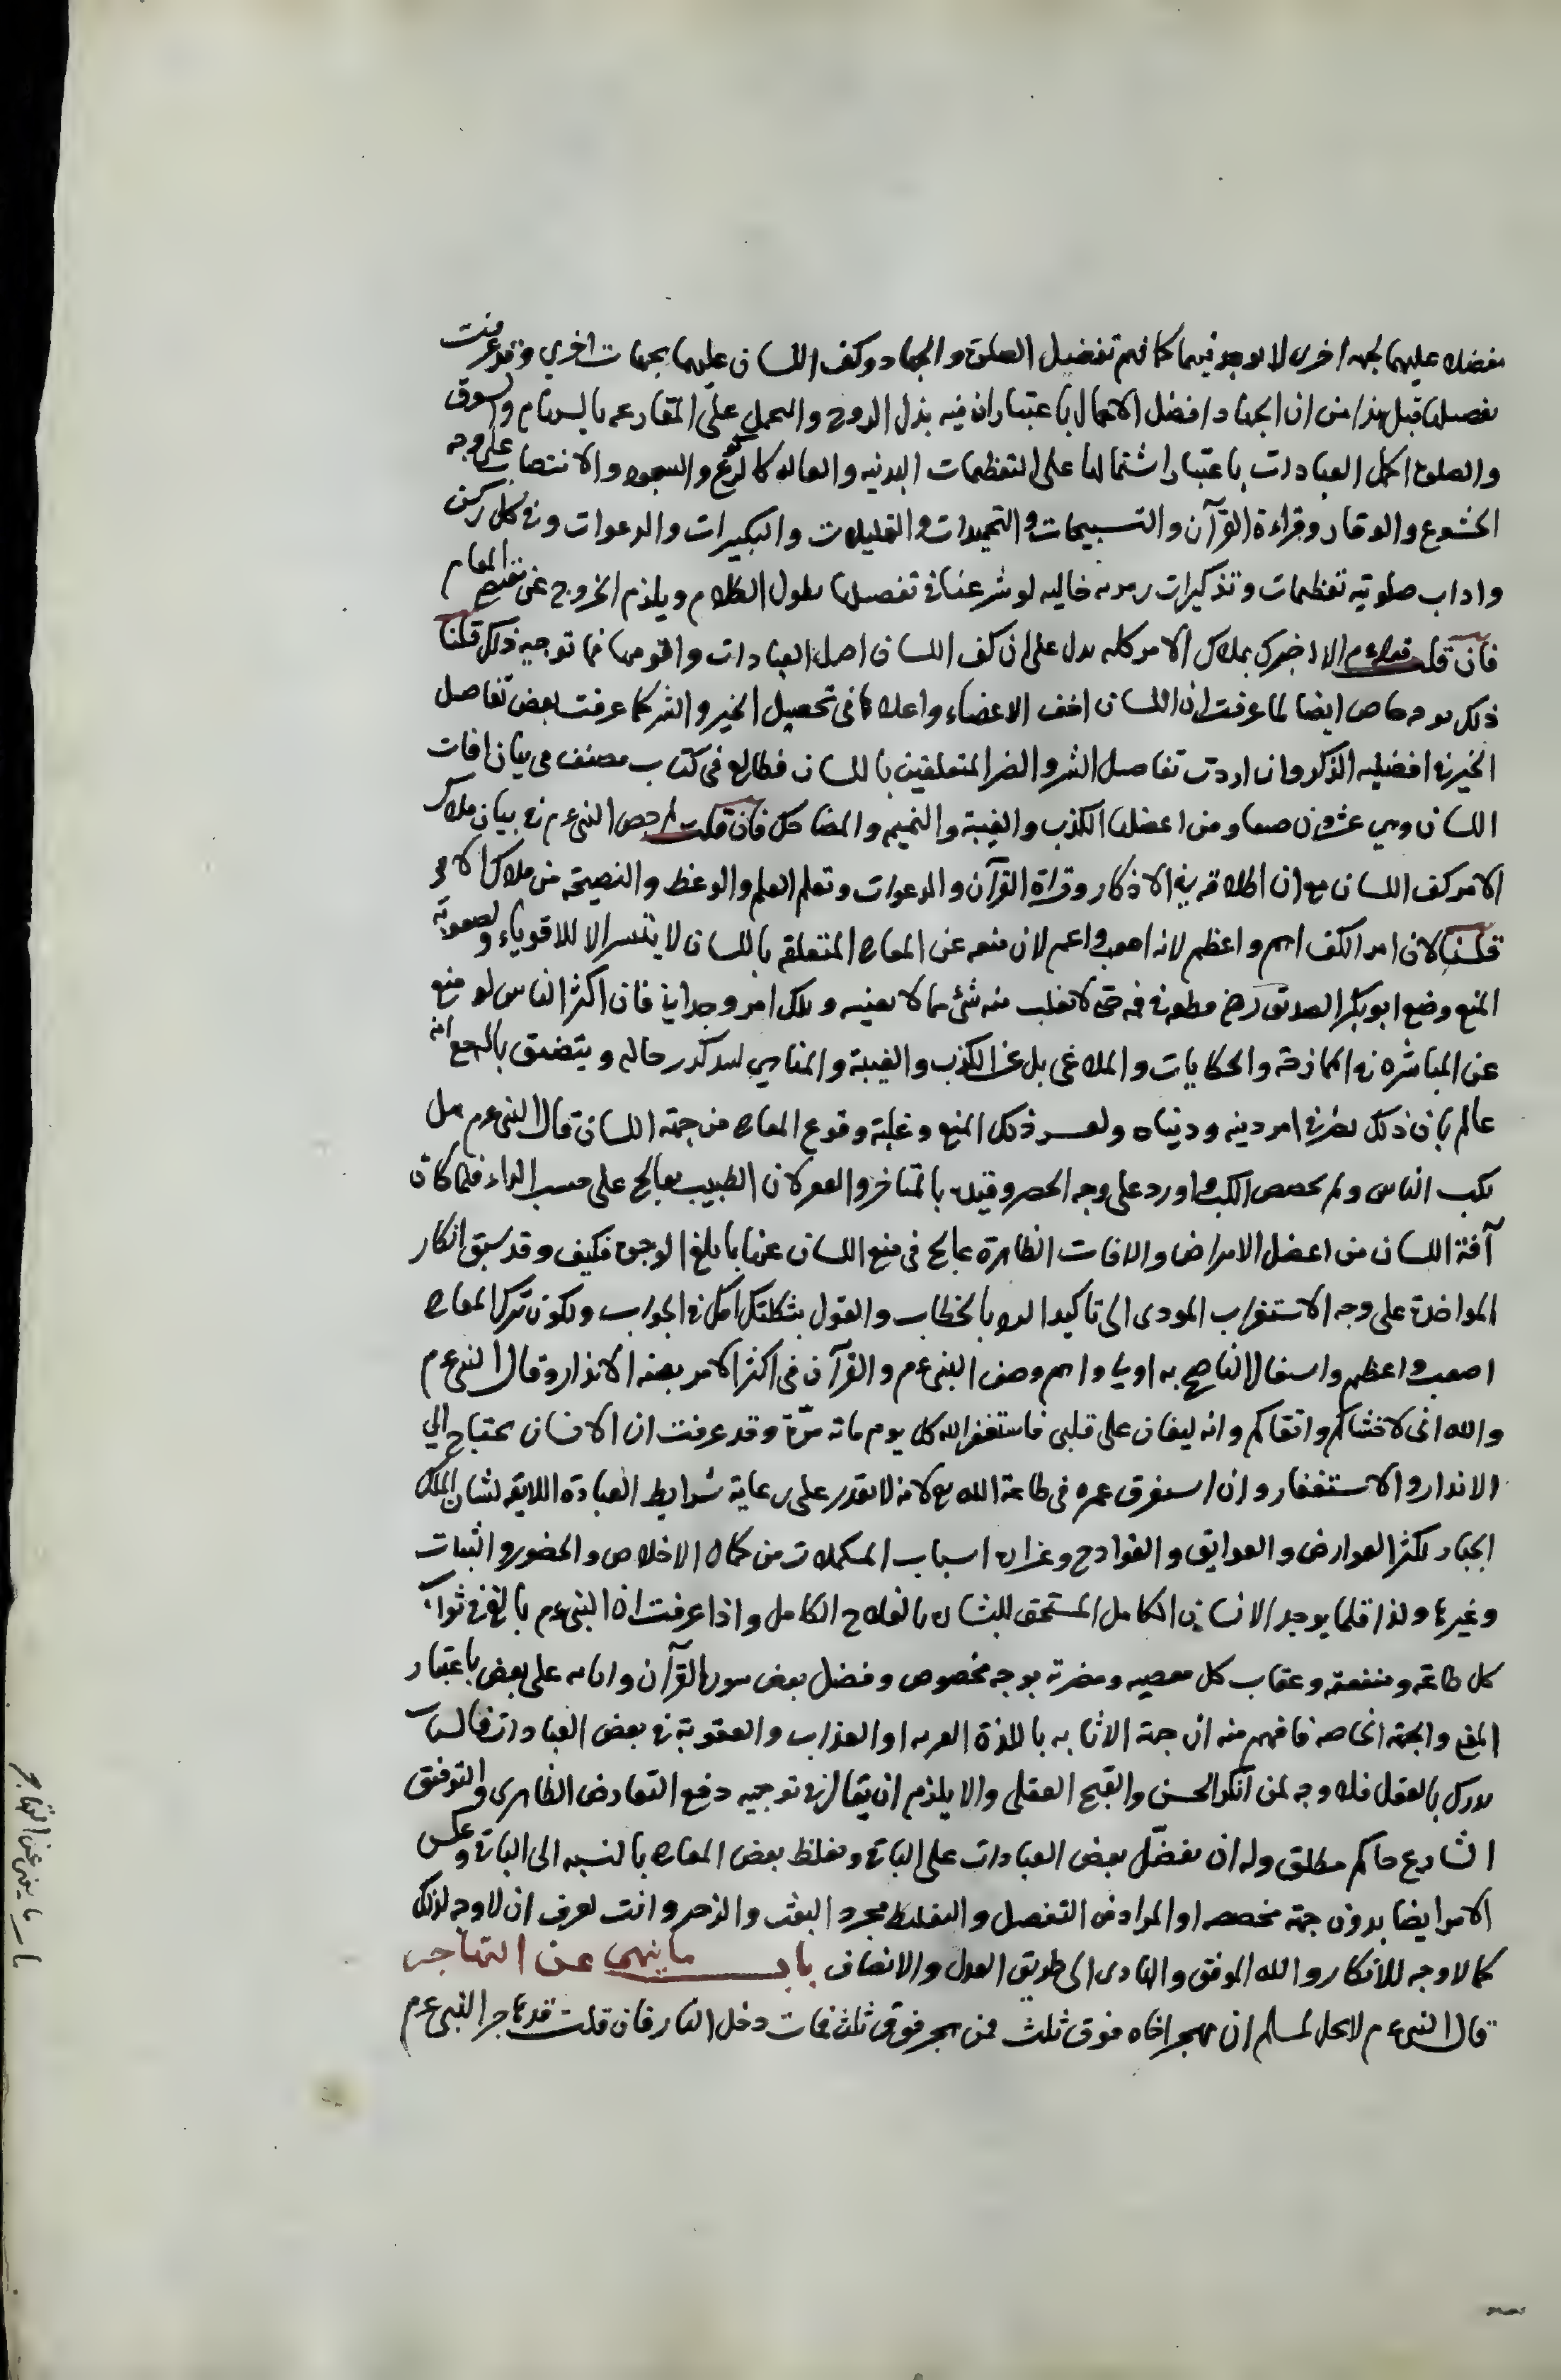 مفضله عليهما لجهه اخرى لا يوجد فيهما كما فهم تفضيل الصلوة والجهاد وكف اللسان عليهما بجهات اخرى وقد عرفت
تفصيلها قبل هذا من ان الجهاد افضل الاعمال باعتبار ان فيه بذل الروح والتحمل على المقارعه بالسهام والسوق
والصلوة اكمل العبادات باعتبار اشتمالها على التعظيمات البدنيه والحاليه كالركوع والسجود والانتصاب على وجه
الخشوع والوقار وقراءة القرآن والتسبيحات والتحميدات والتهليلات والتكبيرات والدعوات وفى كل ركن
واداب صلوتيه تعظيمات وتذكيرات خاليه لو شرعنا فى تفصيلها يطول الكلام ويلزم الخروج عن المقام
فان قلت قوله عم الا اخبرك بملاك الامر كله يدل على ان كف اللسان اصل العبادات واقومها فما توجيه ذلك قلنا
ذلك بوجه خاص ايضا لما عرفت ان اللسان اخف الاعضاء واعلاها فى تحصيل الخير والشر كما عرفت بعض تفاصيل
الخير فى افضليه الذكر وان اردت تفاصيل الشر والضر المتعلقين باللسان فطالع فى كتاب مصنف فى بيان افات
اللسان وهى عشرون ومن اعضلها الكذب والغيبة والنميم والمضاحك فان قلت لم خص النبى عم فى بيان ملاك
الامر كف اللسان مع ان اطلاقه فى الاذكار وقراة القرآن والدعوات وتعلم العلم والوعظ والنصيحة من ملاك الامر
قلنا لان امر الكف اهم واعظم لانه اصعب واعم لان منعه عن المعاصى المتعلقه باللسان لا يتيسر الا للاقوياء ولصعوبة
المنع وضع ابو بكر الصديق رضى فى فمه حتى لا تغلب منه شئ مما لا يعنيه وتلك امر وجدانى فان اكثر الناس لو منع
عن المباشره فى الممازحة والحكايات والملاغى بل عن الكذب والغيبة والمناهى ليتكدر حاله ويتضيق بالمنع مع انه
عالم بان ذلك يضر فى امر دينه ودنياه ولعسر ذلك المنع وغلبة وقوع المعاصى من جهة اللسان قال النبى عم هل
يكب الناس ولم يخصص الكب واورد على وجه الحصر وقيد بالمناخر لان الطبيب يعالج على حسب الداء فلما كان
آفة اللسان من اعضل الامراض والافات الظاهرة عالج فى منع اللسان عنها بابلغ الوجوه فكيف وقد سبق انكار
المواخذة على وجه الاستغراب المودى الى تاكيد الرد بالخطاب والقول بثكلتك امك فى الجواب ولكون ترك المعاصى
اصعب واعظم واشتغال الناصح به اولى واهم وصف النبى عم والقرآن فى اكثر الامر بصفه الانذار وقال النبى عم
والله انى لاخشاكم واتقاكم وانه ليغان على قلبى فاستغفر الله كل يوم مائة مرّة وقد عرفت ان الانسان يحتاج الى
الانذار والاستغفار وان استغرق عمره فى طاعة الله تع لانه لا يقدر على رعاية شرايط العبادة اللايقه لشان الملك
الجبار لكثر العوارض والعوايق والقوادح وعزة اسباب المكملات من كمال الاخلاص والحضور والثبات
وغيرها ولذا قلما يوجد الانسان الكامل المستحق للبشارة بالفلاح الكامل واذا عرفت ان النبى عم بالغ فى ثواب
كل طاعة ومنفعته وعقاب كل معصيه ومضرته بوجه مخصوص وفضل بعض سور القرآن واياته على بعض باعتبار
المعنى والجهة الخاصه فافهم منه ان جهة الاثابه باللذة القربه او العذاب والعقوبة فى بعض العبادات
يدرك بالعقول فلا وجه لمن انكر الحسن والقبح العقلى والا يلزم ان يقال فى توجيه دفع التعارض الظاهرى والتوفيق
الشارع حاكم مطلق وله ان يفضّل بعض العبادات على الباقى ويغلظ بعض المعاصى بالنسبه الى الباقى وعكس
الامر ايضا بدون جهة مخصصه او المراد من التفضيل والتغليظ مجرد البعث والزجر وانت تعرف ان لا وجه لذلك
كما لا وجه للانكار والله الموفق والهادى الى طريق العدل والانصاف باب ما ينهى عن التهاجر
قال النبى عم لا يحل لمسلم ان يهجر اخاه فوق ثلث فمن هجر فوق ثلث فمات دخل النار فان قلت قد هاجر النبى عم
باب ما ينهى عن التهاجر